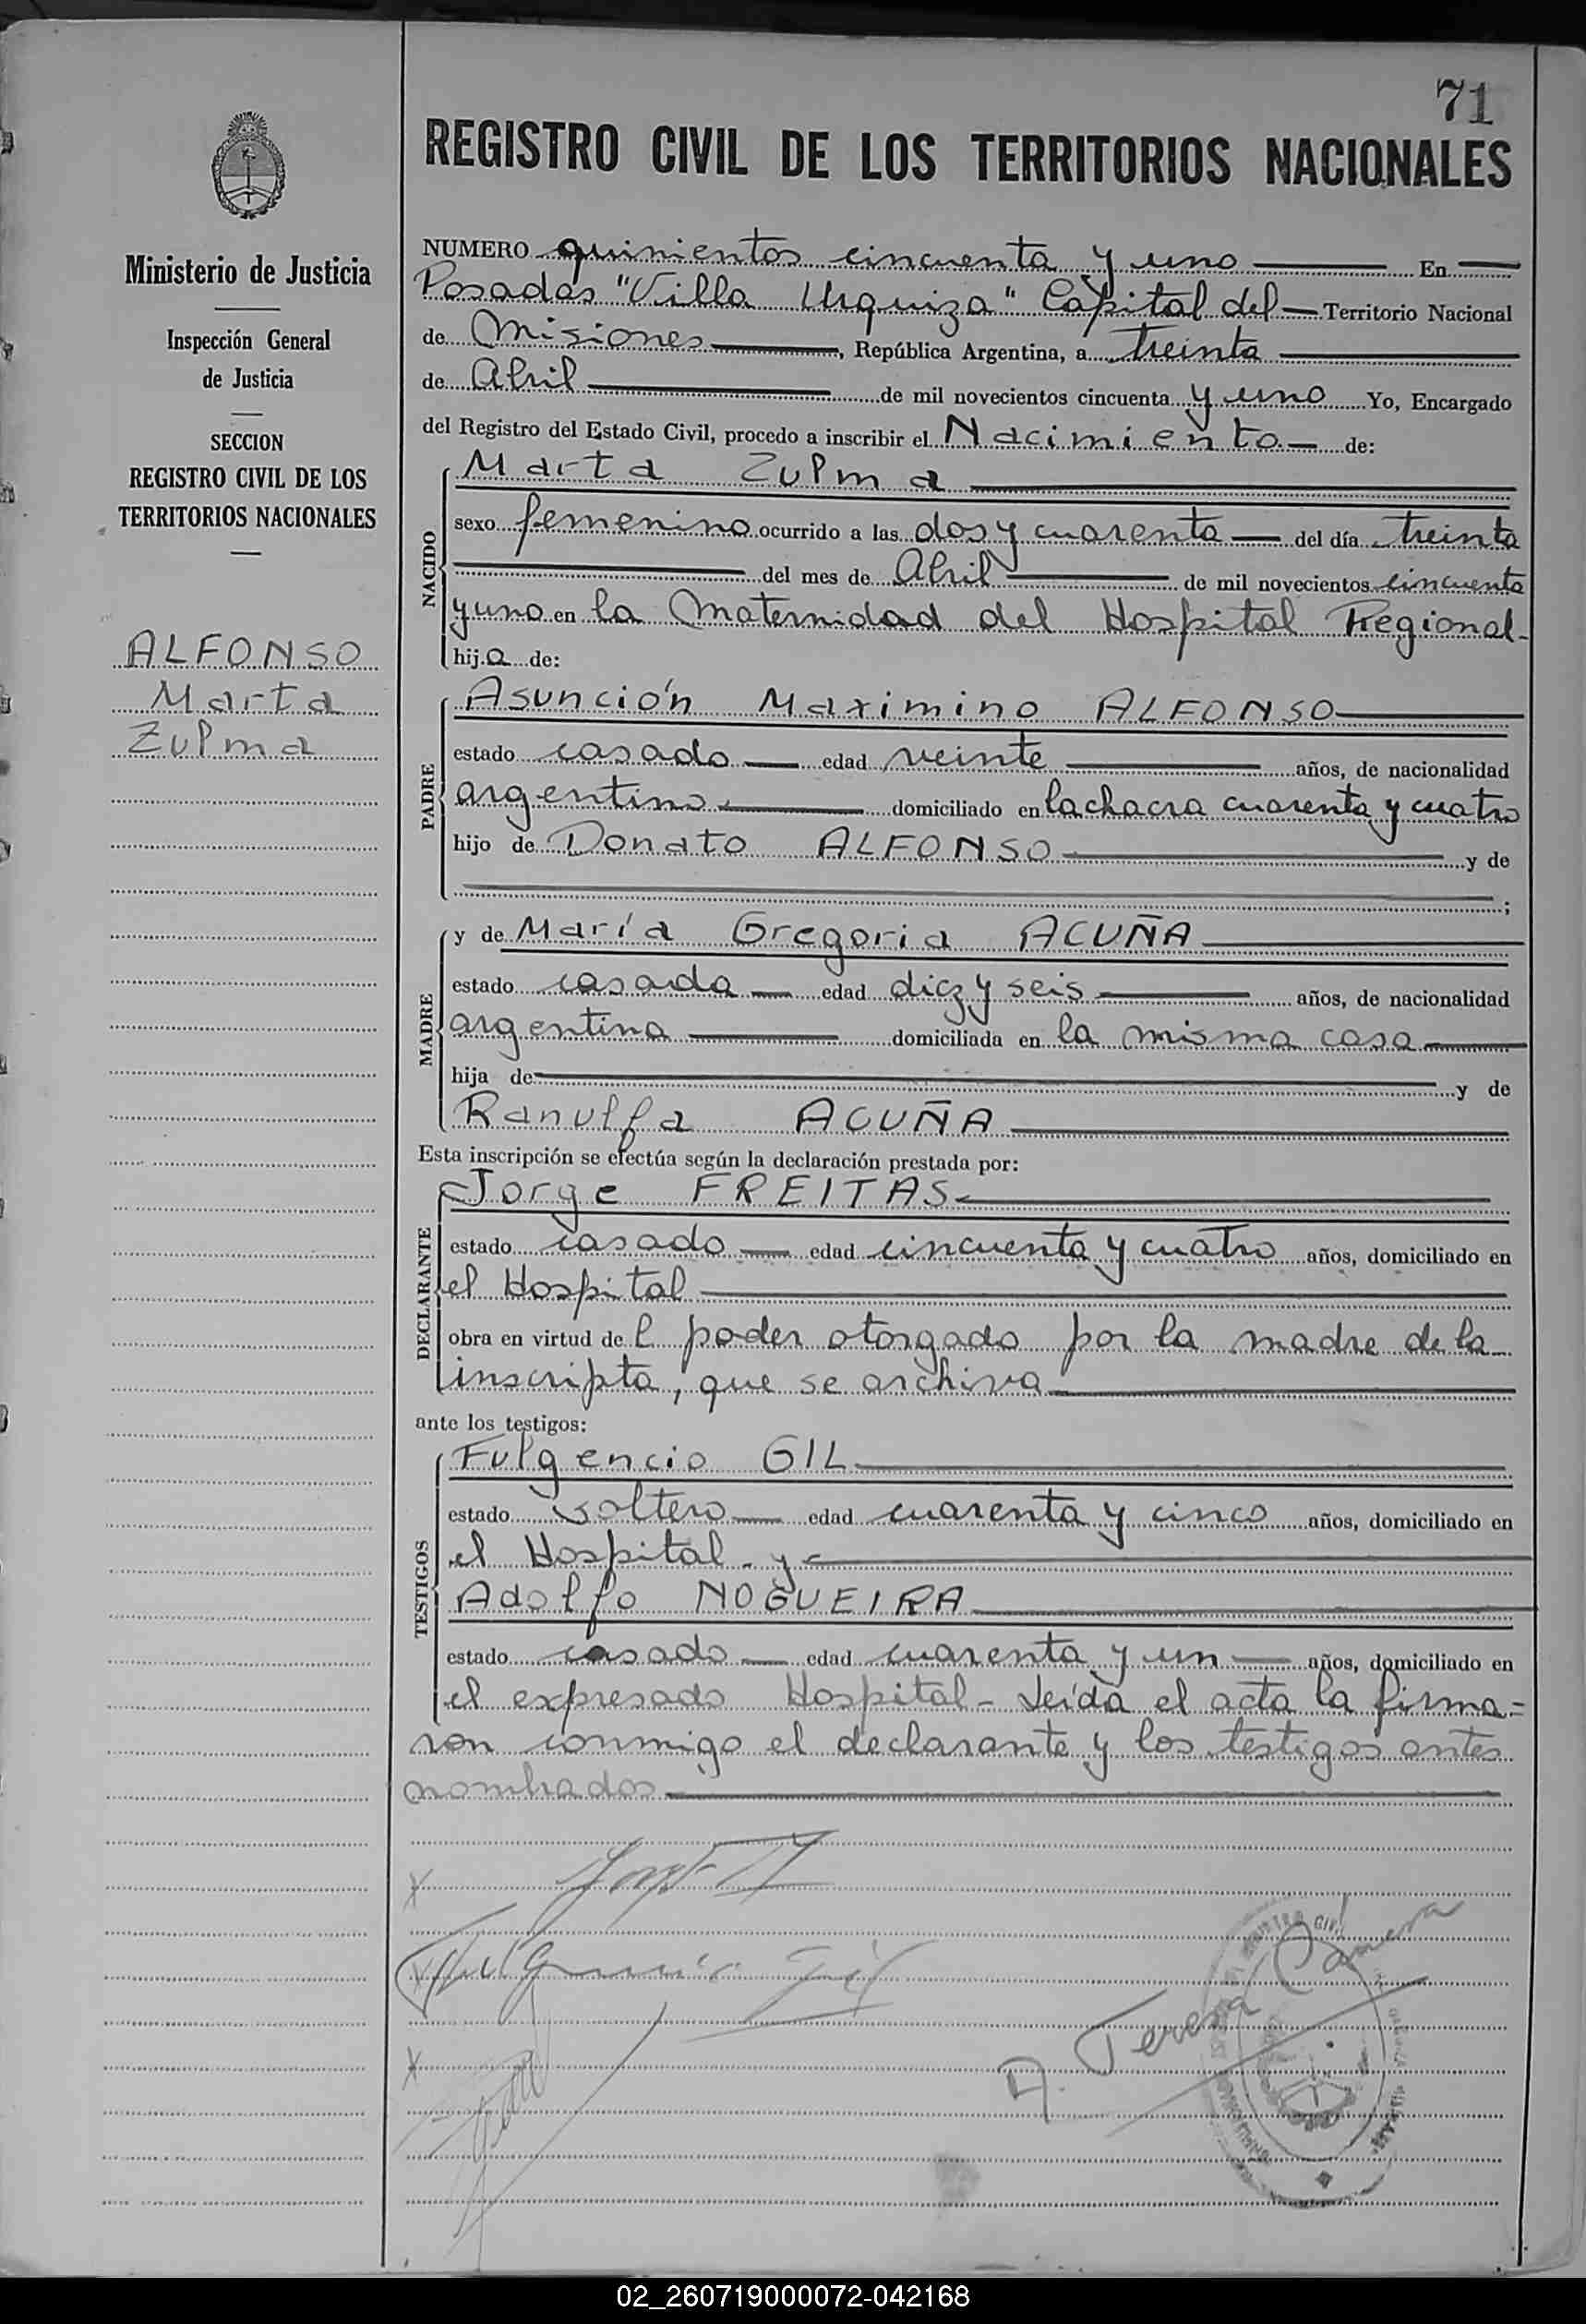 71
REGISTRO CIVIL DE LOS TERRITORIOS NACIONALES
Ministerio de Justicia
Inspección General
de Justicia
SECCION
REGISTRO CIVIL DE LOS
TERRITORIOS NACIONALES
ALFONSO
Marta
Zulma
NUMERO quinientos cincuenta y uno En
Posadas "Villa Urquiza" Capital del Territorio Nacional
de Misiones, República Argentina, a treinta
de Abril de mil novecientos cincuenta y uno Yo, Encargado
del Registro del Estado Civil, procedo a inscribir el Nacimiento de:
NACIDO
Marta Zulma
sexo femenino ocurrido a las dos y cuarenta del día treinta
del mes de Abril de mil novecientos cincuenta
y uno en la Maternidad del Hospital Regional-
hija de:
PADRE
Asunción Maximino ALFONSO
estado casado edad veinte años, de nacionalidad
argentino domiciliado en la chacra cuarenta y cuatro
hijo de Donato ALFONSO y de
;
MADRE
y de María Gregoria ACUÑA
estado casada edad diez y seis años, de nacionalidad
argentina domiciliada en la misma casa
hija de y de
Ranulfa ACUÑA
Esta inscripción se efectúa según la declaración prestada por:
DECLARANTE
Jorge FREITAS
estado casado edad cincuenta y cuatro años, domiciliado en
el Hospital
obra en virtud del poder otorgado por la madre de la
inscripta, que se archiva
ante los testigos:
TESTIGOS
Fulgencio GIL
estado soltero edad cuarenta y cinco años, domiciliado en
el Hospital. y
Adolfo NOGUEIRA
estado casado edad cuarenta y un años, domiciliado en
el expresado Hospital- Leída el acta la firma=
ron conmigo el declarante y los testigos antes
nombrados
Fulgencio Gil
A. Teresa Camera
02_260719000072-042168